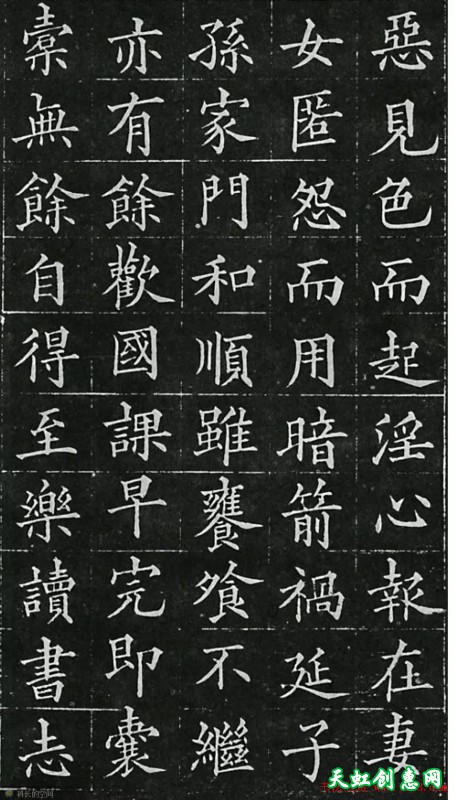 惡見色而起淫心報在妻
女匿怨而用暗箭禍延子
孫家門和順雖饔飧不繼
亦有餘歡國課早完即囊
橐無餘自得至樂讀書志
天虹创意网
科长的空间